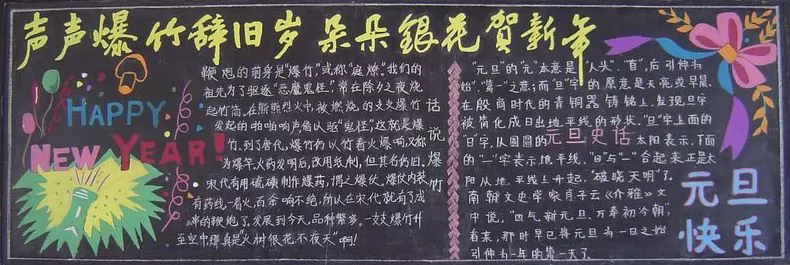 声声爆竹辞旧岁 朵朵银花贺新年
HAPPY
NEW YEAR!
鞭炮的前身是"爆竹",或称"庭燎"。我们的
祖先为了驱逐"恶魔鬼怪",常在除夕之夜烧
起竹筒,在熊熊烈火中,被燃烧的支支爆竹
发起的啪啪响声借以驱"鬼怪",这就是爆
竹。到了唐代,爆竹仍以竹着火爆响,又称
为爆竿,火药发明后,改用纸制,但其名仍旧。
宋代有用硫磺制作爆药,谓之爆仗。爆仗内装
有药线,一着火,百余响不绝,所以在宋代就有了成
串的鞭炮了。发展到今天,品种繁多。一支支爆竹升
至空中那真是"火树银花不夜天"啊!
话说爆竹
"元旦"的"元"本意是"人头"、"首",后引伸为
"始"、"第一"之意;而"旦"字的原意是天亮或早晨。
在殷商时代的青铜器铸铭上,发现旦字
被简化成日出地平线的形状,"旦"字上面的
"日"字,从圆圆的太阳表示,下面
的"一"字表示地平线,"日"与"一"合起来正是太
阳从地平线上升起,"破晓天明"了。
南朝文史学家肖子云《介雅》文
中说,"四气新元旦,万寿初今朝",
看来,那时早已将元旦为一日之始
引伸为一年的第一天了。
元旦史话
元旦
快乐